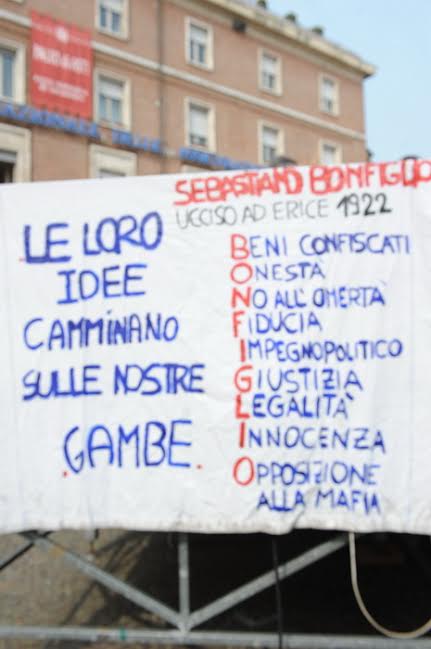 SEBASTIANO BONFIGLIO
UCCISO AD ERICE 1922
LE LORO
IDEE
CAMMINANO
SULLE NOSTRE
.GAMBE.
BENI CONFISCATI
ONESTÀ
NO ALL'OMERTÀ
FIDUCIA
IMPEGNOPOLITICO
GIUSTIZIA
LEGALITÀ
INNOCENZA
OPPOSIZIONE
ALLA MAFIA